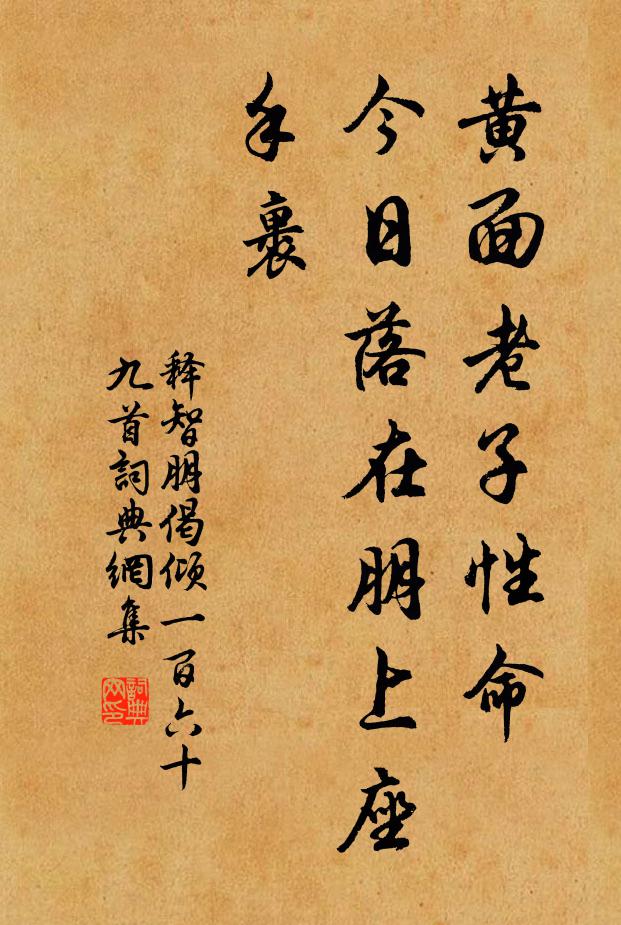 黄面老子性命
今日落在朋上座
手裹
释智朋偈倾一百六十
九首詞典網集
詞典
网印